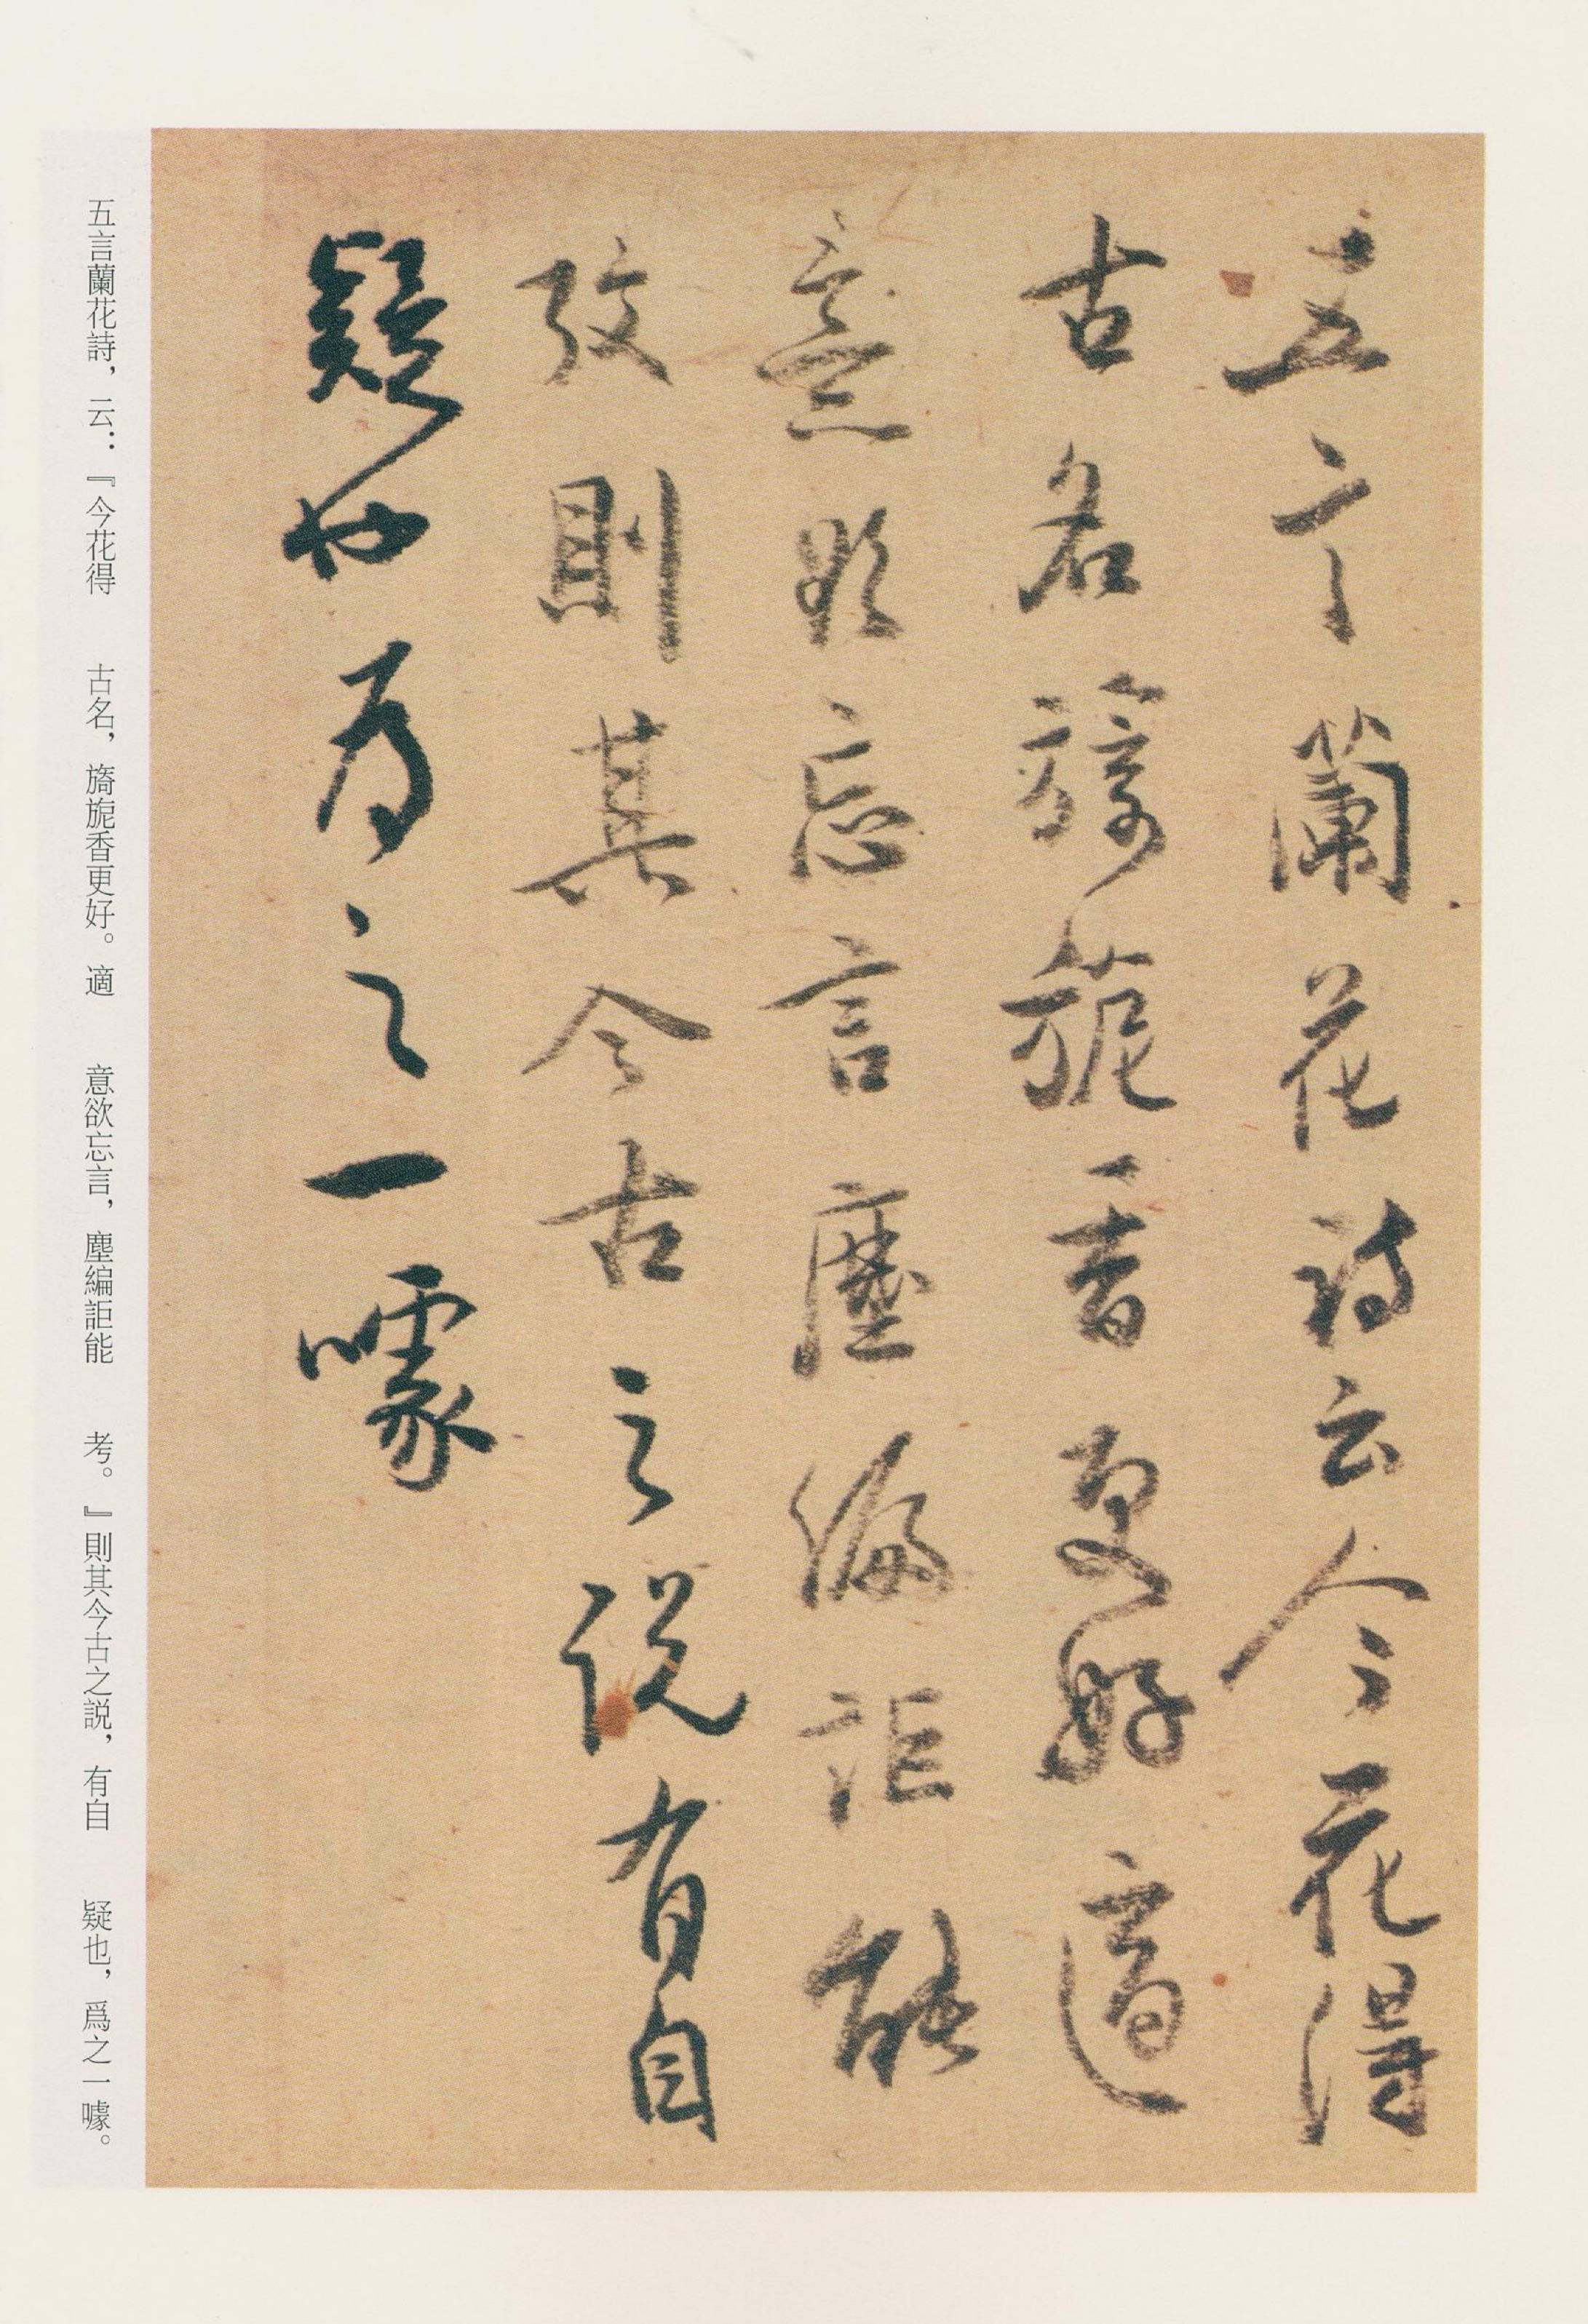 五言蘭花詩云今花得
古名旖旎香更好適
意欲忘言塵編詎能
攷則其今古之説有自
疑也為之一噱
五言蘭花詩，云：『今花得　古名，旖旎香更好。適　意欲忘言，塵編詎能　考。』則其今古之説，有自　疑也，爲之一噱。